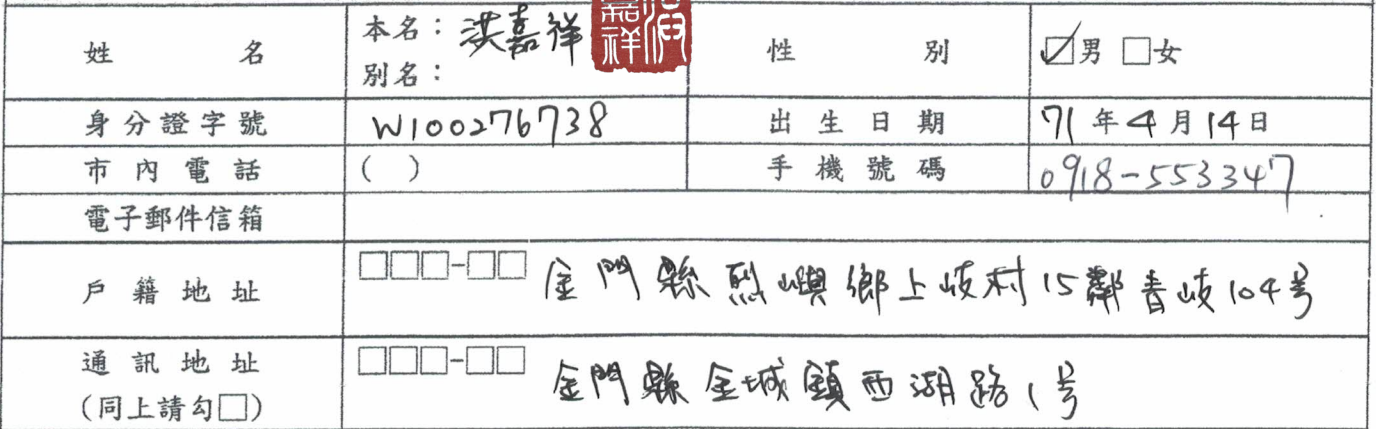 姓 名 本名：洪嘉祥 性 別 ☑男 □女
別名：
身分證字號 W100276738 出生日期 71年4月14日
市內電話 ( ) 手機號碼 0918-553347
電子郵件信箱
戶籍地址 □□□-□□ 金門縣烈嶼鄉上岐村15鄰青岐104号
通訊地址 □□□-□□ 金門縣金城鎮西湖路1号
(同上請勾□)